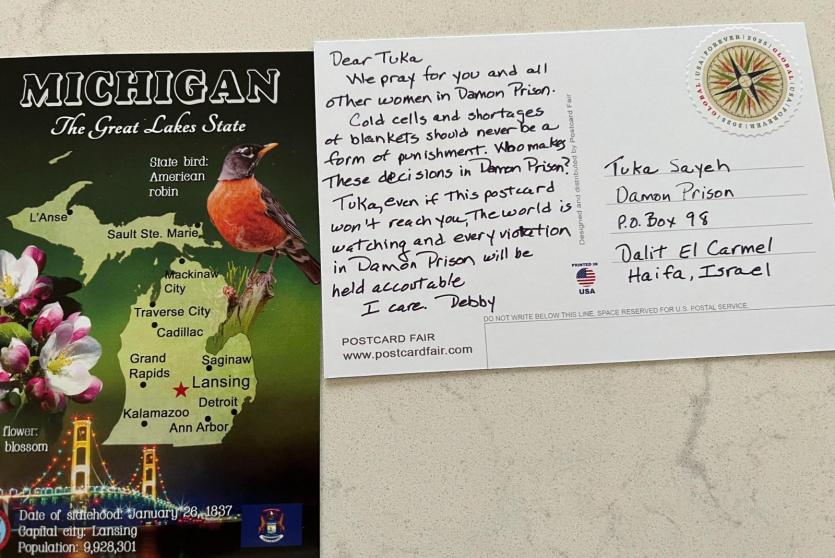 MICHIGAN
The Great Lakes State
State bird:
American
robin
L'Anse
Sault Ste. Marie
Mackinaw
City
Traverse City
Cadillac
Grand
Rapids
Saginaw
Lansing
Kalamazoo
Detroit
Ann Arbor
flower:
blossom
Date of statehood: January 26, 1837
Capital city: Lansing
Population: 9,928,301
Dear Tuka
We pray for you and all
other women in Damon Prison.
Cold cells and shortages
of blankets should never be a
form of punishment. Who makes
These decisions in Damon Prison?
Tuka, even if this postcard
won't reach you, The world is
watching and every violation
in Damon Prison will be
held accoutable
I care. Debby
POSTCARD FAIR
www.postcardfair.com
Designed and distributed by Postcard Fair
GLOBAL USA FOREVER 2025 GLOBAL USA FOREVER 2025
Tuka Sayeh
Damon Prison
P.O. Box 98
Dalit El Carmel
Haifa, Israel
PRINTED IN
USA
DO NOT WRITE BELOW THIS LINE, SPACE RESERVED FOR U.S. POSTAL SERVICE.